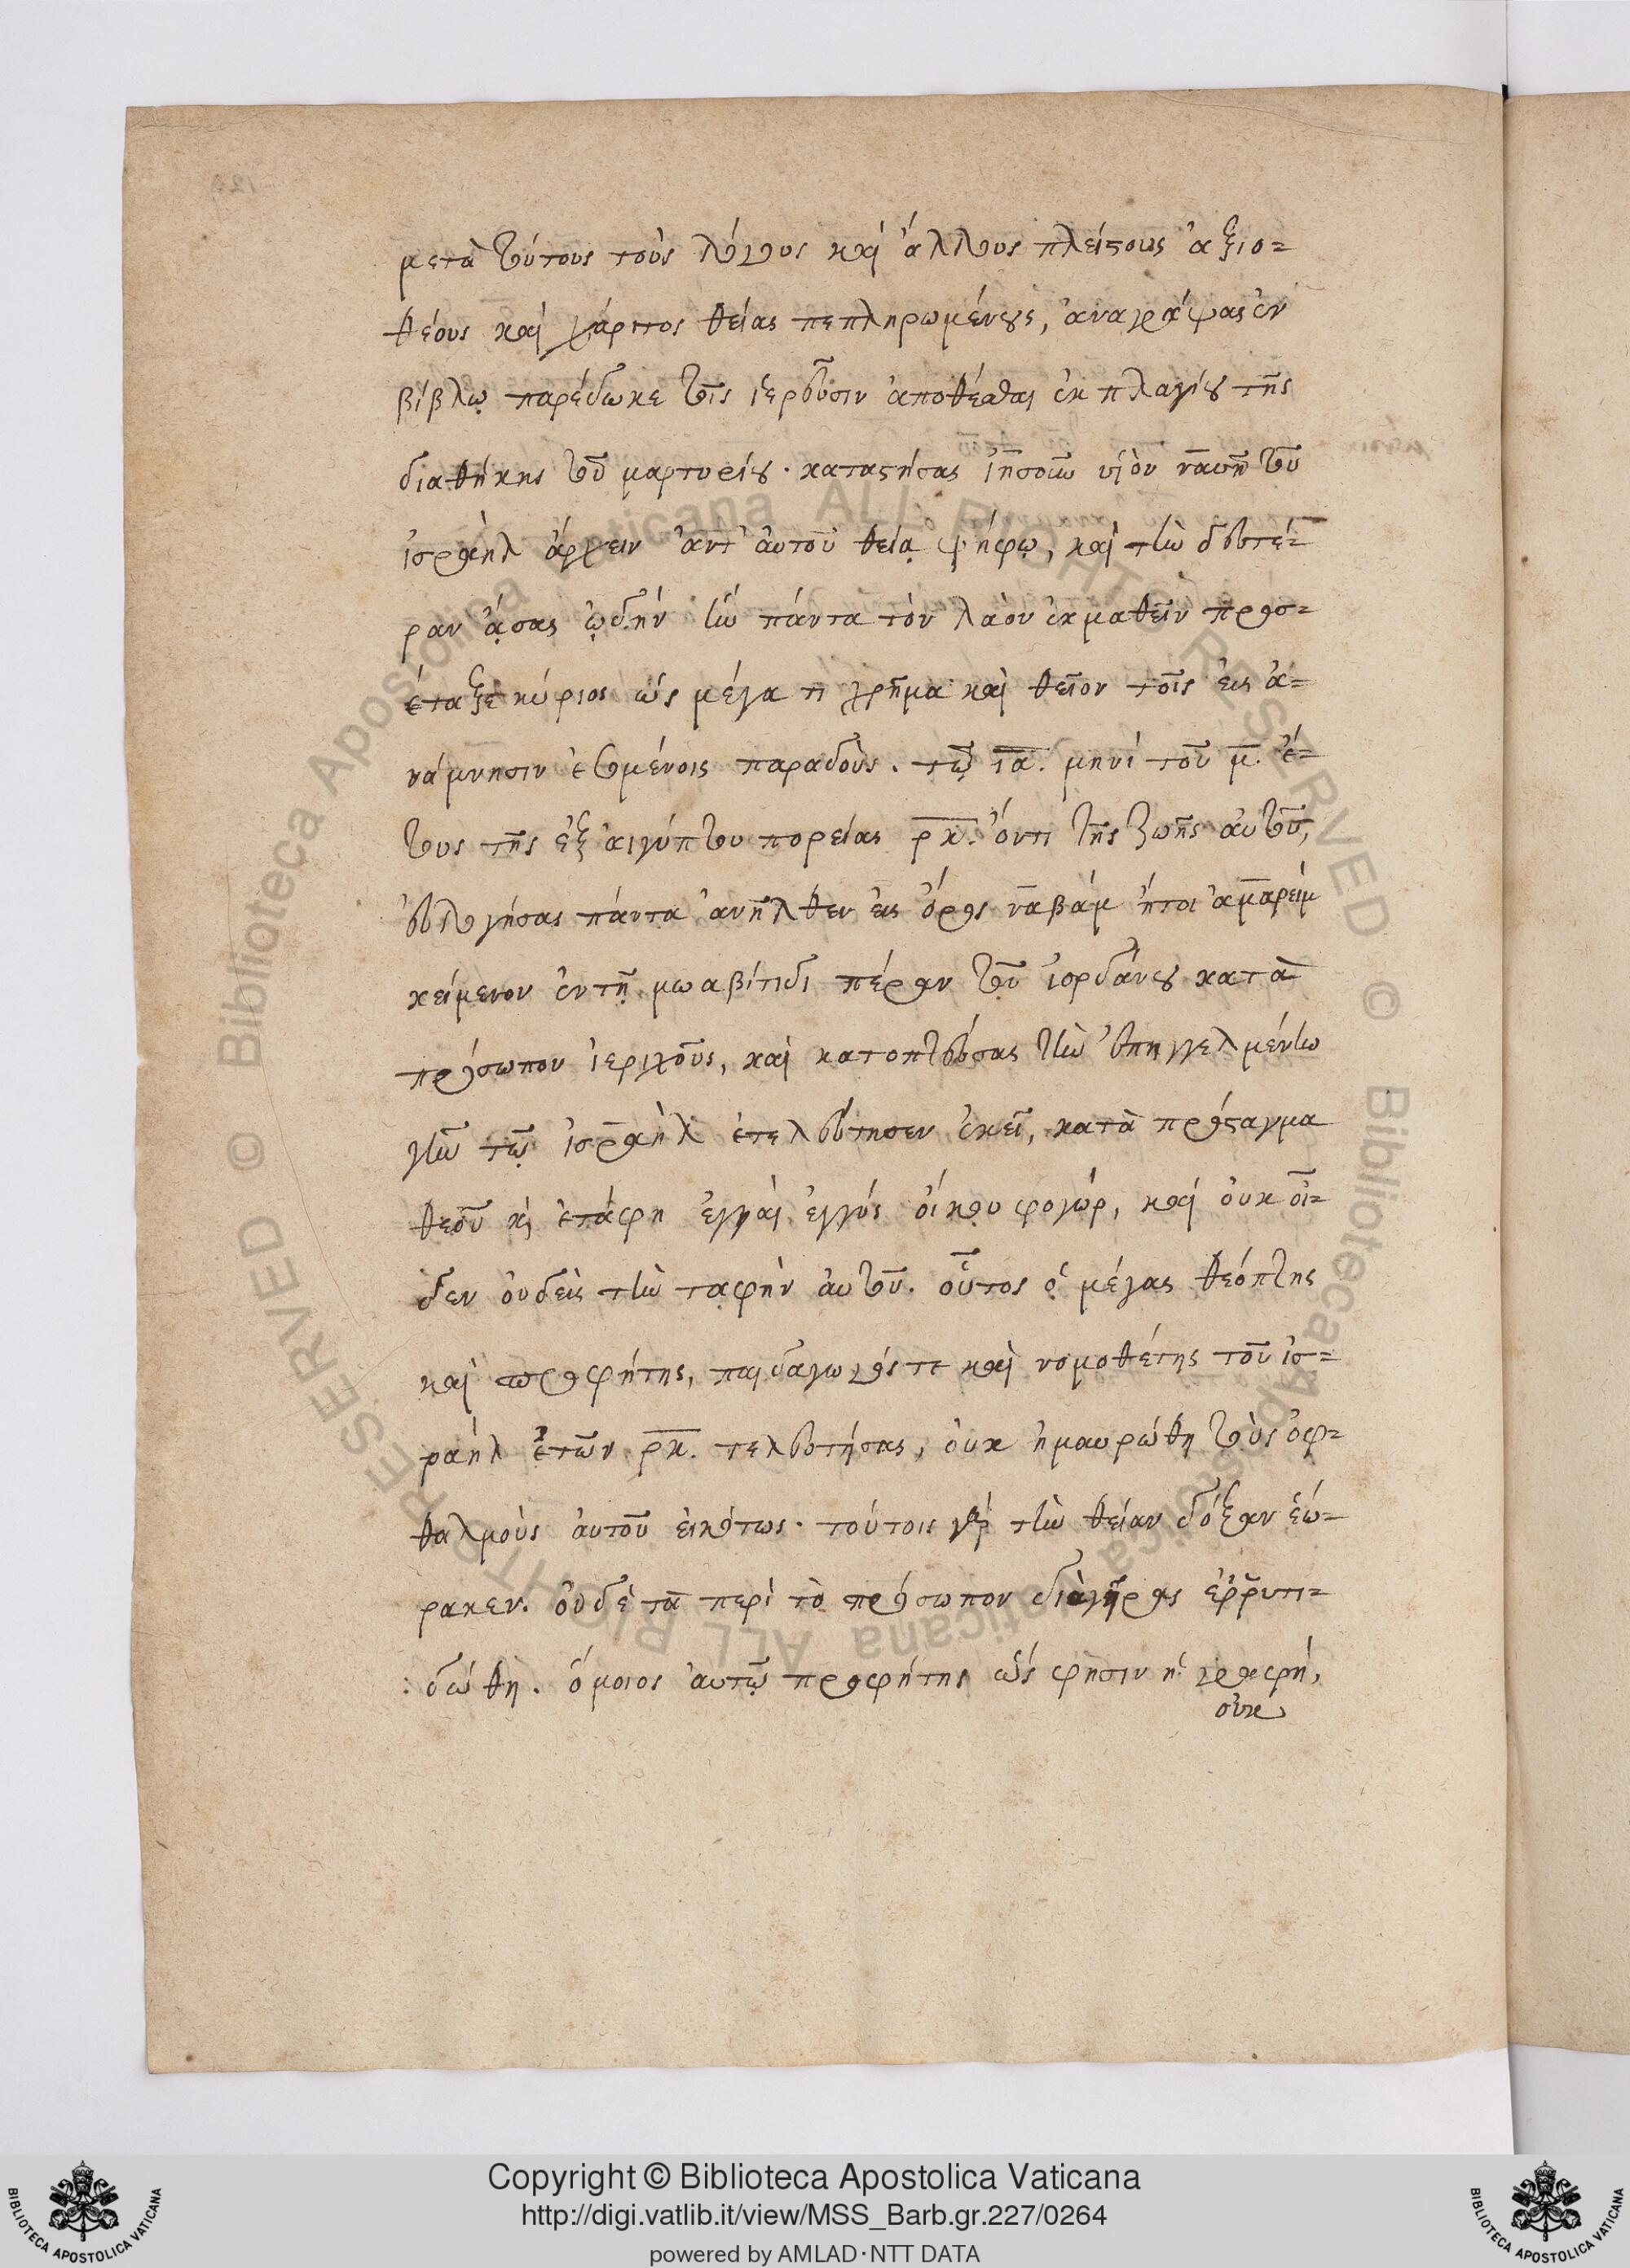 μετὰ τούτους τοὺς λόγους καὶ ἄλλους πλείστους ἀξιο=
θέους καὶ χάριτος θείας πεπληρωμένους, ἀναγράψας ἐν
βίβλῳ παρέδωκε τοῖς ἱερεῦσιν ἀποθέσθαι ἐκ πλαγίου τῆς
διαθήκης τοῦ μαρτυρίου· καταστήσας ἰησοῦν υἱὸν ναυῆ τοῦ
ἰσραὴλ ἄρχειν ἀντ' αὐτοῦ θείᾳ ψήφῳ, καὶ τὴν δευτέ=
ραν ᾄσας ᾠδήν ἣν πάντα τὸν λαὸν ἐκμαθεῖν προσ=
έταξε κύριος ὡς μέγα τι χρῆμα καὶ θεῖον τοῖς εἰς ἀ=
νάμνησιν ἐσομένοις παραδοὺς. τῷ ια. μηνὶ τοῦ μ. ἔ=
τους τῆς ἐξ αἰγύπτου πορείας ρκ. ὄντι τῆς ζωῆς αὐτοῦ,
εὐλογήσας πάντα ἀνῆλθεν εἰς ὄρος ναβάμ ἤτοι ἀμαρείμ
κείμενον ἐν τῇ μωαβίτιδι πέραν τοῦ ἰορδάνου κατὰ
πρόσωπον ἱεριχοῦς, καὶ κατοπτεύσας τὴν ἐπηγγελμένην
γῆν τῷ ἰσραὴλ ἐτελεύτησεν ἐκεῖ, κατὰ πρόσταγμα
θεοῦ κὶ ἐτάφη ἐγγαὶ ἐγγύς οἴκου φογώρ, καὶ οὐκ οἶ=
δεν οὐδεὶς τὴν ταφὴν αὐτοῦ. οὗτος ὁ μέγας θεόπτης
καὶ προφήτης, παιδαγωγός τε καὶ νομοθέτης τοῦ ἰσ=
ραὴλ ἐτῶν ρκ. τελευτήσας, οὐκ ἠμαυρώθη τοὺς ὀφ=
θαλμοὺς αὐτοῦ εἰκότως· τούτοις γὰρ τὴν θείαν δόξαν ἑώ=
ρακεν. οὐδὲ τὰ περὶ τὸ πρόσωπον διὰ γῆρας ἐρῥυτι=
δώθη. ὅμοιος αὐτῷ προφήτης ὡς φησιν ἡ γραφή,
οὐκ
Copyright © Biblioteca Apostolica Vaticana
http://digi.vatlib.it/view/MSS_Barb.gr.227/0264
powered by AMLAD·NTT DATA